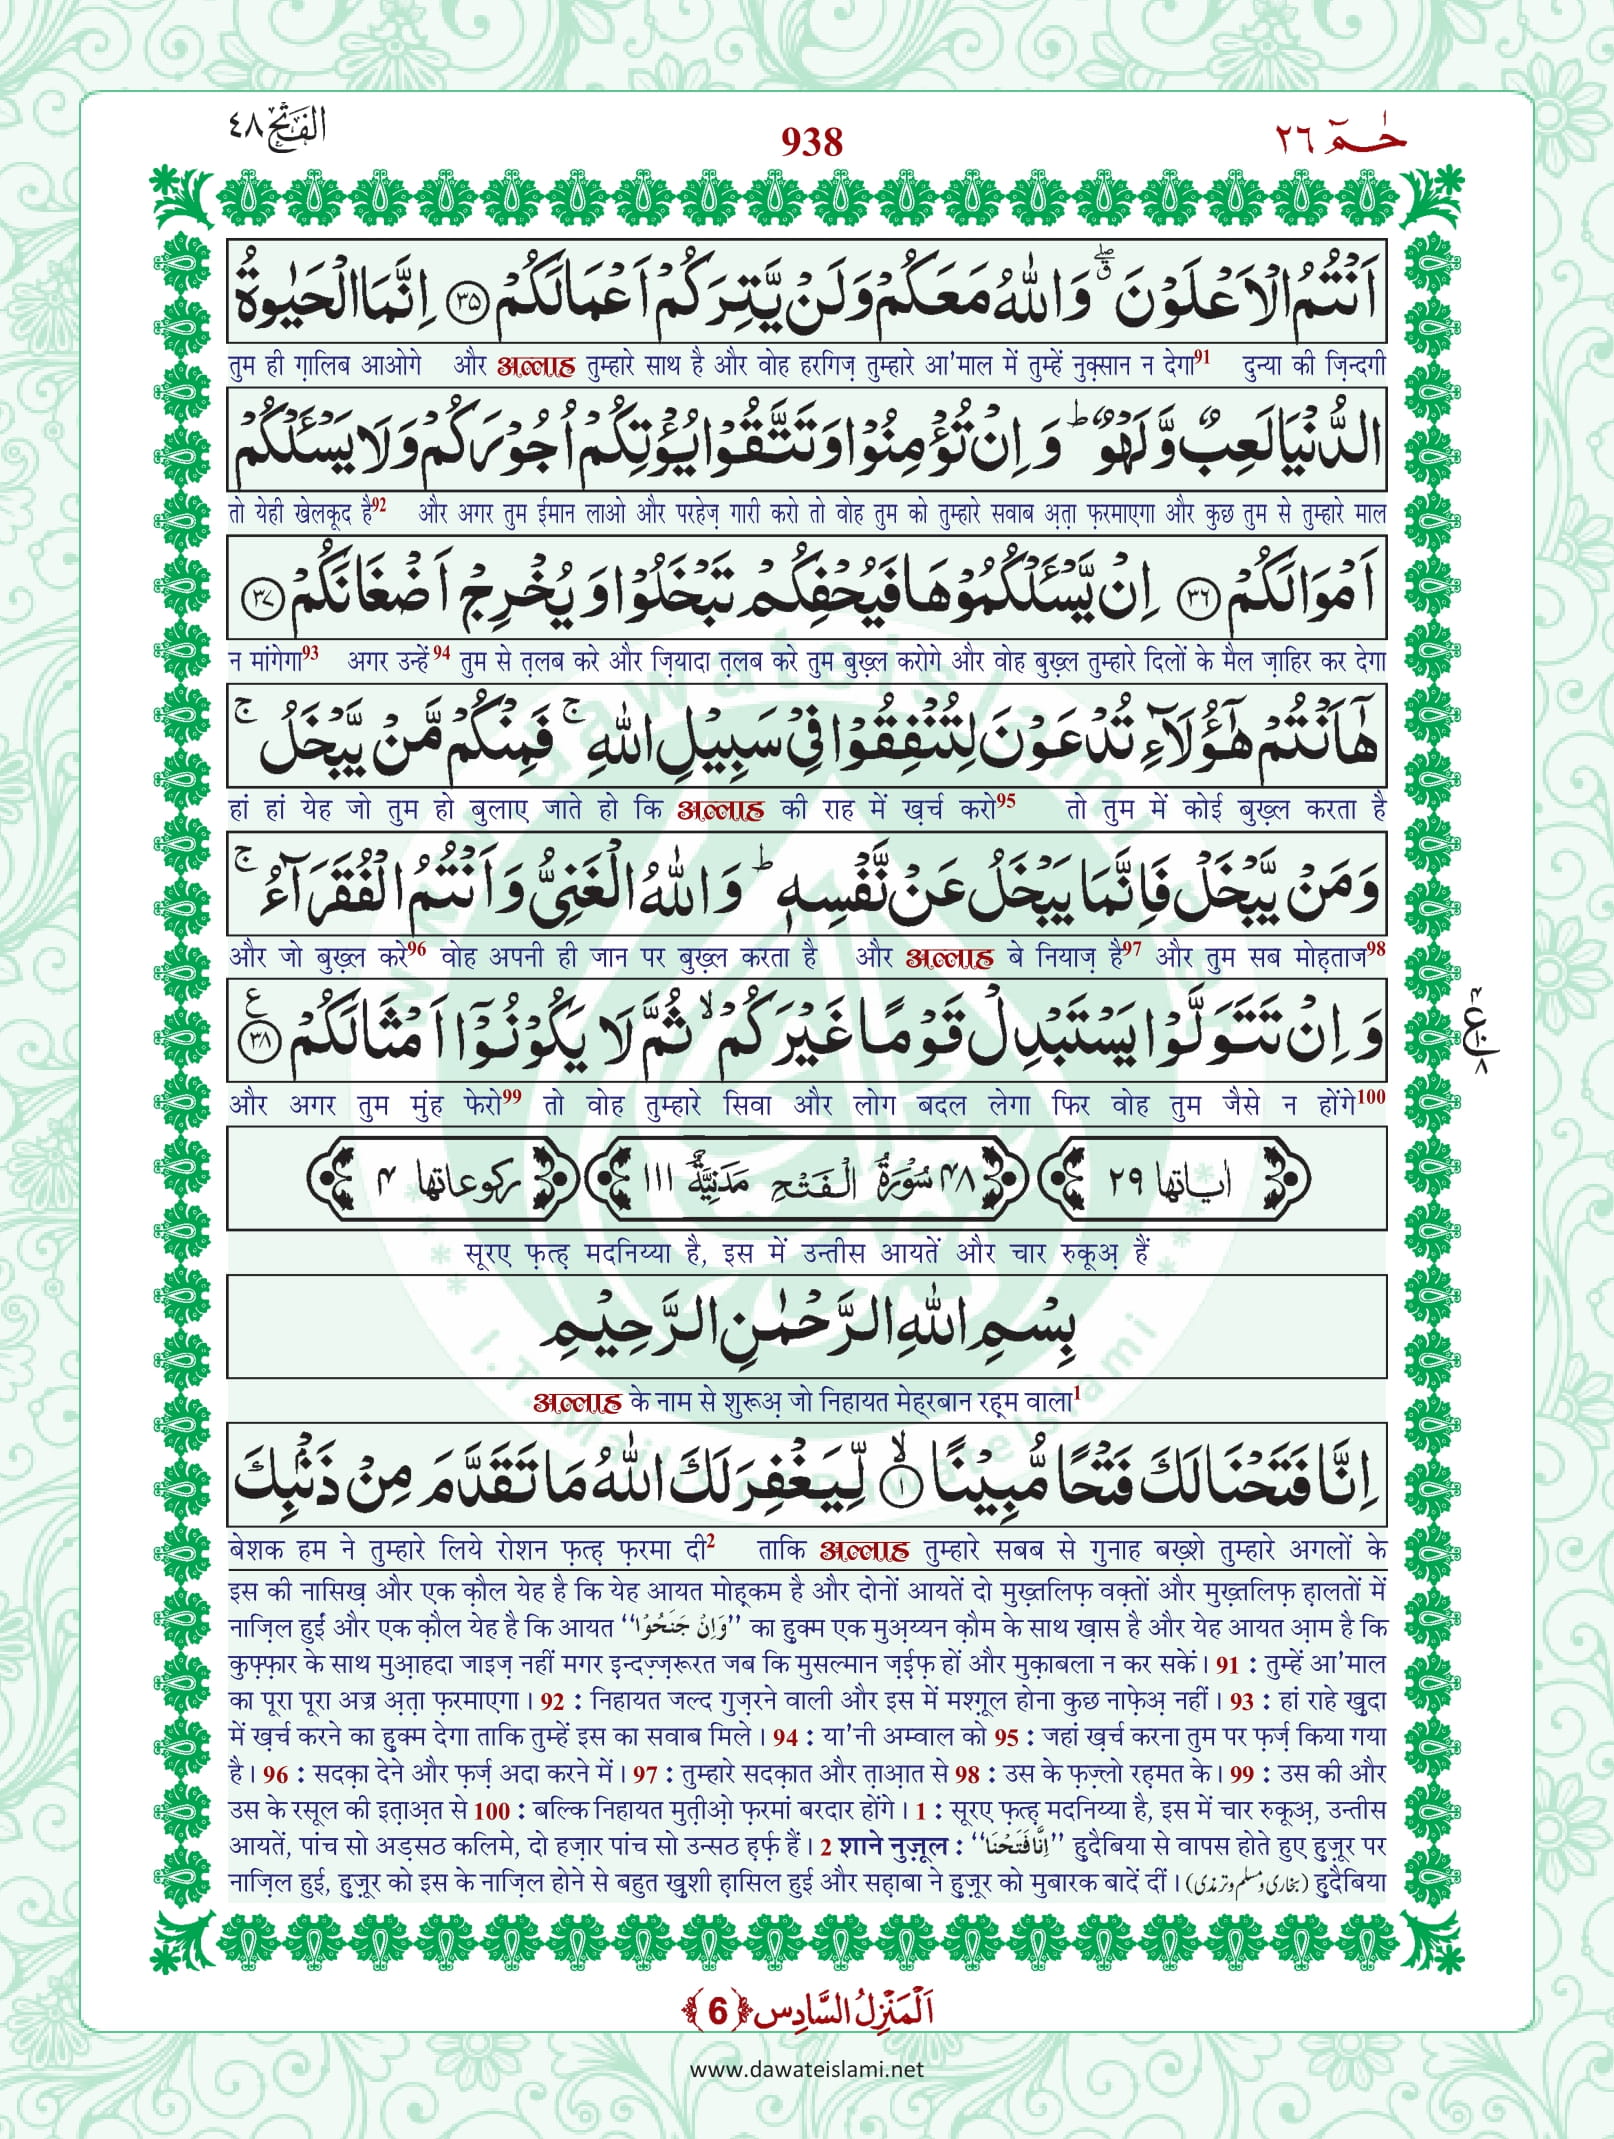 حٰمٓ ٢٦
938
الفَتْح ٤٨
اَنْتُمُ الْاَعْلَوْنَ ۖۗ وَاللّٰهُ مَعَكُمْ وَلَنْ یَّتِرَكُمْ اَعْمَالَكُمْ ﴿۳۵﴾ اِنَّمَا الْحَیٰوةُ
तुम ही ग़ालिब आओगे और अल्लाह तुम्हारे साथ है और वोह हरगिज़ तुम्हारे आ'माल में तुम्हें नुक़्सान न देगा91 दुन्या की ज़िन्दगी
الدُّنْیَا لَعِبٌ وَّلَهْوٌ ؕ وَاِنْ تُؤْمِنُوْا وَتَتَّقُوْا یُؤْتِكُمْ اُجُوْرَكُمْ وَلَا یَسْـَٔلْكُمْ
तो येही खेलकूद है92 और अगर तुम ईमान लाओ और परहेज़ गारी करो तो वोह तुम को तुम्हारे सवाब अ़त़ा फ़रमाएगा और कुछ तुम से तुम्हारे माल
اَمْوَالَكُمْ ﴿۳۶﴾ اِنْ یَّسْـَٔلْكُمُوْهَا فَیُحْفِكُمْ تَبْخَلُوْا وَیُخْرِجْ اَضْغَانَكُمْ ﴿۳۷﴾
न मांगेगा93 अगर उन्हें94 तुम से त़लब करे और ज़ियादा त़लब करे तुम बुख़्ल करोगे और वोह बुख़्ल तुम्हारे दिलों के मैल ज़ाहिर कर देगा
هٰۤاَنْتُمْ هٰۤؤُلَآءِ تُدْعَوْنَ لِتُنْفِقُوْا فِیْ سَبِیْلِ اللّٰهِ ۚ فَمِنْكُمْ مَّنْ یَّبْخَلُ ۚ
हां हां येह जो तुम हो बुलाए जाते हो कि अल्लाह की राह में ख़र्च करो95 तो तुम में कोई बुख़्ल करता है
وَمَنْ یَّبْخَلْ فَاِنَّمَا یَبْخَلُ عَنْ نَّفْسِهٖ ؕ وَاللّٰهُ الْغَنِیُّ وَاَنْتُمُ الْفُقَرَآءُ ۚ
और जो बुख़्ल करे96 वोह अपनी ही जान पर बुख़्ल करता है और अल्लाह बे नियाज़ है97 और तुम सब मोह़ताज98
وَاِنْ تَتَوَلَّوْا یَسْتَبْدِلْ قَوْمًا غَیْرَكُمْ ۙ ثُمَّ لَا یَكُوْنُوْۤا اَمْثَالَكُمْ ﴿۳۸﴾ ع
और अगर तुम मुंह फेरो99 तो वोह तुम्हारे सिवा और लोग बदल लेगा फिर वोह तुम जैसे न होंगे100
اٰیاتها ٢٩ ٤٨ سُوْرَةُ الْفَتْحِ مَدَنِیَّةٌ ١١١ رکوعاتها ٤
सूरए फ़त्ह़ मदनिय्या है, इस में उन्तीस आयतें और चार रुकूअ़ हैं
بِسْمِ اللّٰهِ الرَّحْمٰنِ الرَّحِیْمِ
अल्लाह के नाम से शुरूअ़ जो निहायत मेह्रबान रह़्म वाला1
اِنَّا فَتَحْنَا لَكَ فَتْحًا مُّبِیْنًا ﴿۱﴾ ۙ لِّیَغْفِرَ لَكَ اللّٰهُ مَا تَقَدَّمَ مِنْ ذَنْۢبِكَ
बेशक हम ने तुम्हारे लिये रोशन फ़त्ह़ फ़रमा दी2 ताकि अल्लाह तुम्हारे सबब से गुनाह बख़्शे तुम्हारे अगलों के
इस की नासिख़ और एक क़ौल येह है कि येह आयत मोह़्कम है और दोनों आयतें दो मुख़्तलिफ़ वक़्तों और मुख़्तलिफ़ ह़ालतों में
नाज़िल हुईं और एक क़ौल येह है कि आयत ‘‘وَاِنْ جَنَحُوْا’’ का हुक्म एक मुअ़य्यन क़ौम के साथ ख़ास है और येह आयत आ़म है कि
कुफ़्फ़ार के साथ मुआ़हदा जाइज़ नहीं मगर इन्दज़्ज़रूरत जब कि मुसल्मान ज़ईफ़ हों और मुक़ाबला न कर सकें। 91 : तुम्हें आ'माल
का पूरा पूरा अज्र अ़त़ा फ़रमाएगा। 92 : निहायत जल्द गुज़रने वाली और इस में मश्ग़ूल होना कुछ नाफ़ेअ़ नहीं। 93 : हां राहे ख़ुदा
में ख़र्च करने का हुक्म देगा ताकि तुम्हें इस का सवाब मिले। 94 : या'नी अम्वाल को 95 : जहां ख़र्च करना तुम पर फ़र्ज़ किया गया
है। 96 : सदक़ा देने और फ़र्ज़ अदा करने में। 97 : तुम्हारे सदक़ात और त़ाआ़त से 98 : उस के फ़ज़्लो रह़मत के। 99 : उस की और
उस के रसूल की इत़ाअ़त से 100 : बल्कि निहायत मुत़ीओ़ फ़रमां बरदार होंगे। 1 : सूरए फ़त्ह़ मदनिय्या है, इस में चार रुकूअ़, उन्तीस
आयतें, पांच सो अड़सठ कलिमे, दो हज़ार पांच सो उन्सठ ह़र्फ़ हैं। 2 शाने नुज़ूल : ‘‘اِنَّا فَتَحْنَا’’ हुदैबिया से वापस होते हुए हुज़ूर पर
नाज़िल हुई, हुज़ूर को इस के नाज़िल होने से बहुत ख़ुशी ह़ासिल हुई और सह़ाबा ने हुज़ूर को मुबारक बादें दीं। (بخاری و مسلم و ترمذی) हुदैबिया
اَلْمَنْزِلُ السَّادِس ﴿6﴾
www.dawateislami.net